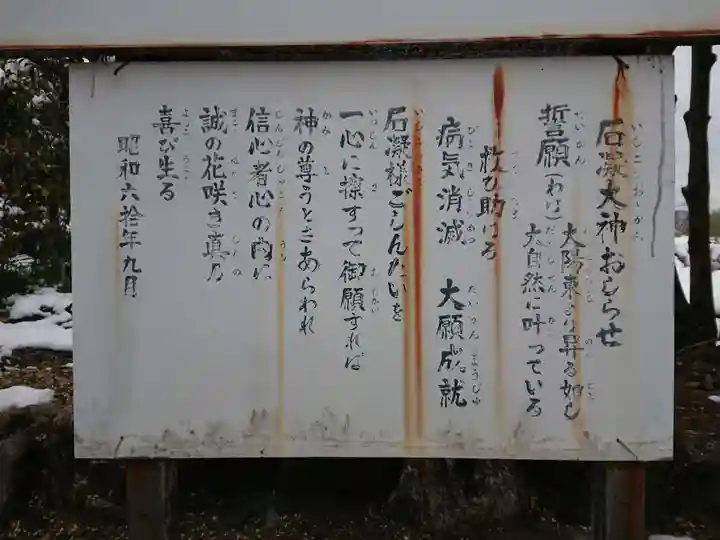 石凝大神おしらせ
誓願(わけ)太陽東より昇る如し
大自然に叶っている
救ひ助ける
病気消滅 大願成就
石凝様ごしんたいを
一心に擦すって御願すれば
神の尊うとさあらわれ
信心者心の内に
誠の花咲き真の
喜び生る
昭和六拾年九月